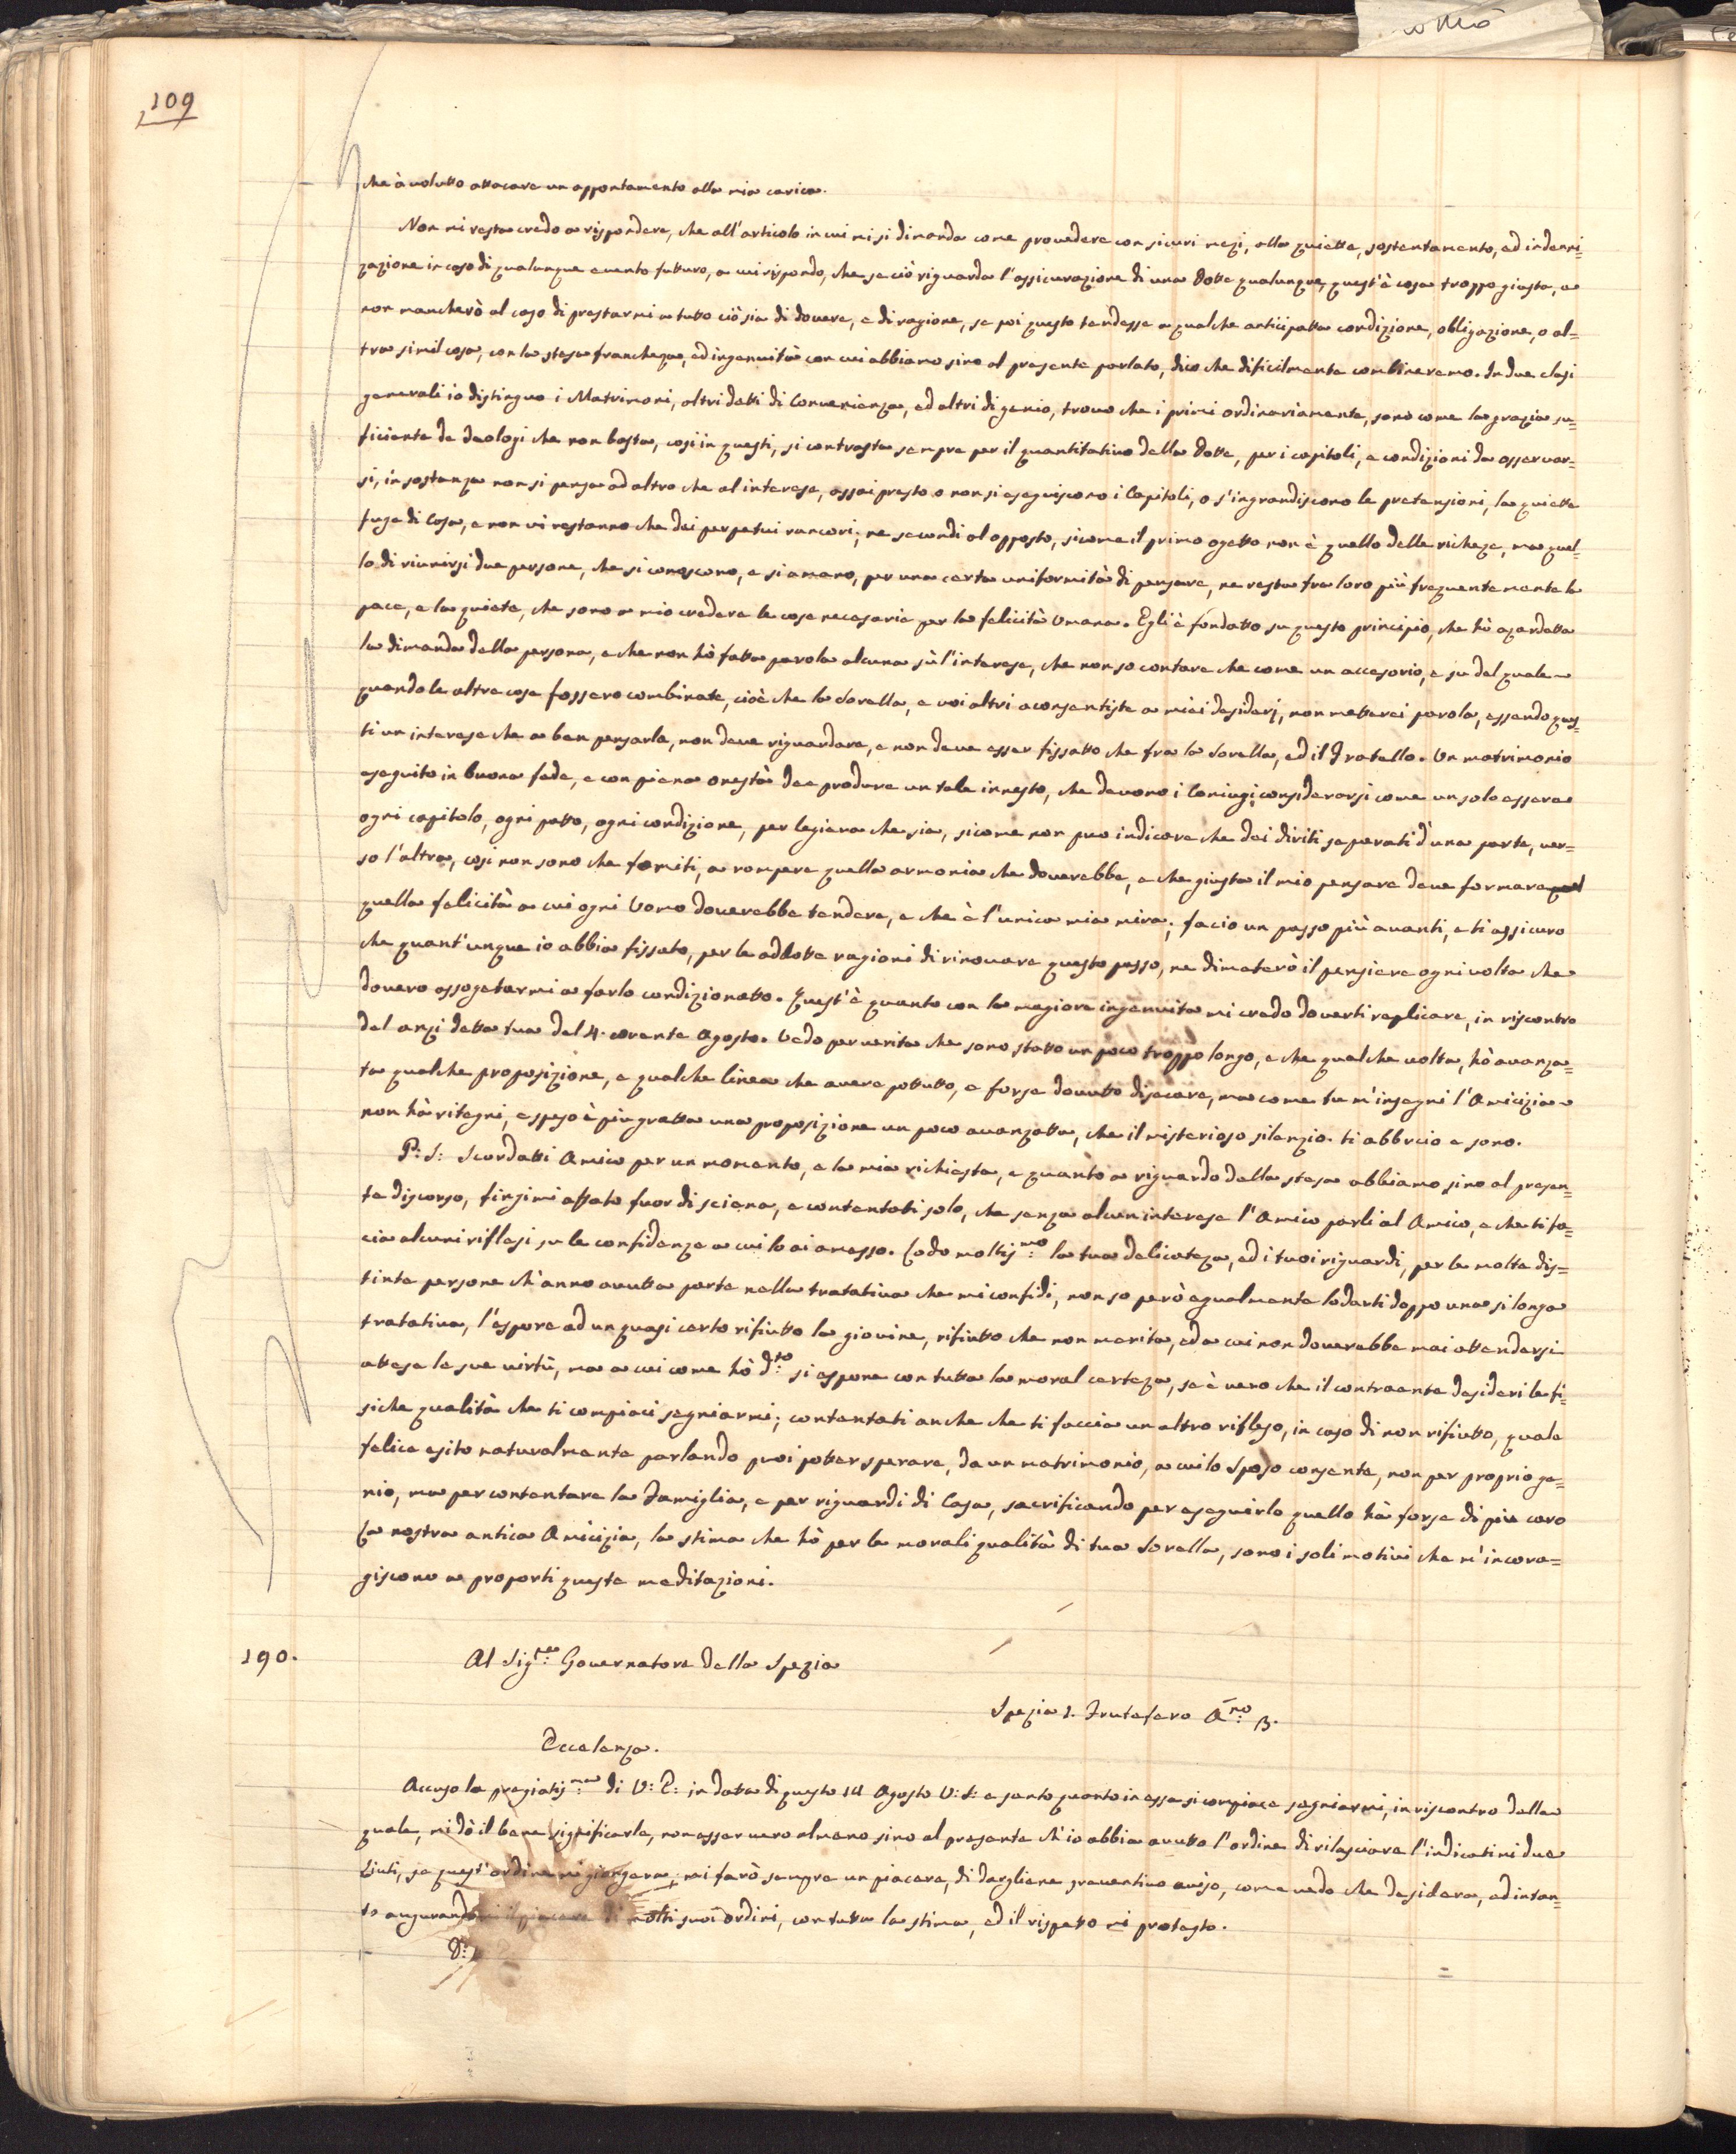 109
che à volutto attacare un appontamento alla mia carica.
Non mi resta credo a rispondere, che all'articolo in cui mi si dimanda come provedere con sicuri mezi, alla quiette, sostentamento, ed indenni=
zazione in caso di qualunque evento futturo, a cui rispondo, che se ciò riguarda l'assicurazione di una dotte qualunque, quest'è cosa troppo giusta, e
non mancherò al caso di prestarmi a tutto ciò sia di dovere, e di ragione, se poi questo tendesse a qualche anticipatta condizione, obligazione, o al=
tra simil cosa, con la stesa francheza, ed ingenuità con cui abbiamo sino al presente parlato, dico che dificilmente combineremo. In due clasi
generali io distinguo i Matrimoni, altri detti di Convenienza, ed altri di genio, trovo che i primi ordinariamente, sono come la grazia su=
ficiente de deologi che non basta, così in questi, si contrasta sempre per il quantitativo della dotte, per i capitoli, e condizioni da osservar=
si, in sostanza non si pensa ad altro che al interese, assai presto o non si eseguiscono i Capitoli, o s'ingrandiscono le pretensioni, la quiette
fuge di Casa, e non vi restanno che dei perpetui rancori; ne secondi al opposto, sicome il primo ogetto non è quello delle richeze, ma quel=
lo di riunirsi due persone, che si conoscono, e si amano, per una certa uniformità di pensare, ne resta fra loro più frequentemente la
pace, e la quiete, che sono a mio credere le cose necesarie per la felicità Umana. Egli è fondatto su questo principio, che hò azardatta
la dimanda della persona, e che non hò fatta parola alcuna sù l'interese, che non so contare che come un accesorio, e su del quale
quando le altre cose fossero combinate, cioè che la Sorella, e voi altri aconsentiste a miei desiderj, non metterei parola, essendo ques=
ti un interese che a ben pensarla, non deve riguardare, e non deve esser fissatto che fra la Sorella, ed il Fratello. Un matrimonio
eseguito in buona fede, e con piena onestà dee produre un tale innesto, che devono i Coniugi considerarsi come un solo essere
ogni capitolo, ogni patto, ogni condizione, per legiera che sia, sicome non puo indicare che dei diriti separati d'una parte, ver=
so l'altra, così non sono che fomiti, a rompere quella armonia che doverebbe, e che giusta il mio pensare deve formare
quella felicità a cui ogni Uomo doverebbe tendere, e che è l'unica mia mira; facio un passo più avanti, e ti assicuro
che quant'unque io abbia fissato, per le addotte ragioni di rinovare questo passo, ne dimeterò il pensiere ogni volta che
dovero assogetarmi a farlo condizionatto. Quest'è quanto con la magiore ingenuita mi credo doverti replicare, in riscontro
del anzi detta tua del 4. corente Agosto. Vedo per verita che sono statto un poco troppo longo, e che qualche volta, hò avanza=
ta qualche proposizione, e qualche linea che avere pottuto, e forse dovutto disecare, ma come tu m'insegni l'Amicizia
non hà ritegni, e speso è più gratta una proposizione un poco avanzatta, che il misterioso silenzio. ti abbrcio e sono.
P: S: Scordatti Amico per un momento, e la mia richiesta, e quanto a riguardo della stesa abbiamo sino al presen=
te discorso, fingimi affato fuor di sciena, e contentati solo, che senza alcun interese l'Amico parli al Amico, e che ti fa=
cia alcuni riflesi su le confidenze a cui lo ai amesso. Lodo moltis:mo la tua delicateza, ed i tuoi riguardi, per le molte dis=
tinte persone ch'anno avutta parte nella tratativa che mi confidi, non so però egualmente lodarti doppo una si longa
tratativa, l'espore ad un quasi certo rifiutto la giovine, rifiutto che non merita, ed a cui non doverebbe mai attendersi
attese le sue virtù, ma a cui come hò d:to si espone con tutta la moral certeza, se è vero che il contraente desideri le fi=
siche qualità che ti compiaci segniarmi; contentati anche che ti faccia un altro rifleso, in caso di non rifiutto, quale
felice esito naturalmente parlando puoi potter sperare, da un matrimonio, a cui lo Sposo consente, non per proprio ge=
nio, ma per contentare la Famiglia, e per riguardi di Casa, sacrificando per eseguirlo quello hà forse di piu caro
La nostra antica Amicizia, la stima che hò per le morali qualità di tua Sorella, sono i soli motivi che m'incora=
giscono a proporti queste meditazioni.
190.
Al Sig:re Governatore della Spezia
Spezia 1. Frutefero A:no 13.
Eccelenza.
Accuso la pregiatis:ma di V: E: in data di questo 14 Agosto V: S: e sento quanto in essa si compiace segniarmi, in riscontro della
quale, mi dò il bene significarle, non esser vero almeno sino al presente ch'io abbia avutto l'ordine di rilasciare l'indicatimi due
Liuti, se quest'ordine mi giongera, mi farò sempre un piacere, di dargliene preventivo aviso, come vedo che desidera, ed intan=
to augurandomi il piacere di molti suoi ordini, con tutta la stima, ed il rispetto mi protesto.
D: